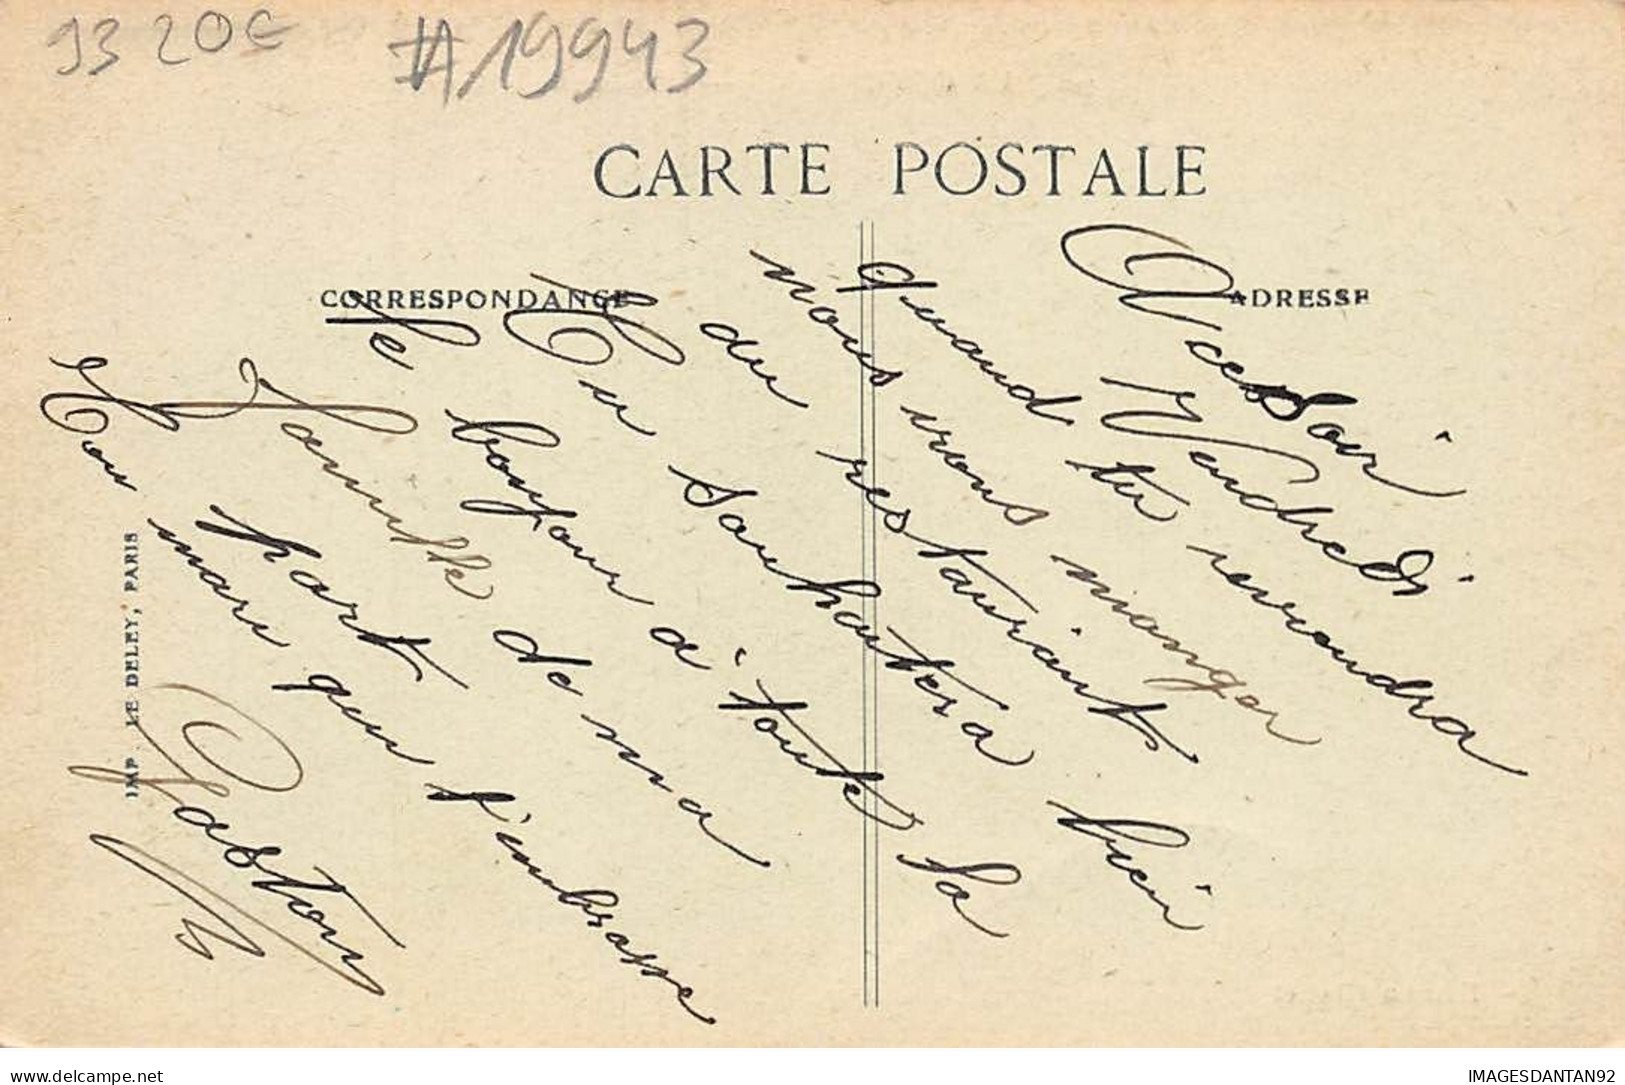 93 20€ #19943
CARTE POSTALE
CORRESPONDANCE
ADRESSE
Vendredi
quand tu reviendra
nous irons manger
du restaurant
Tu souhautera bien
le bonjour a' toute la
famille de ma
part
Ton mari qui t'embrasse
Gaston
IMP. LE DELEY, PARIS
delcampe.net
IMAGESDANTAN92